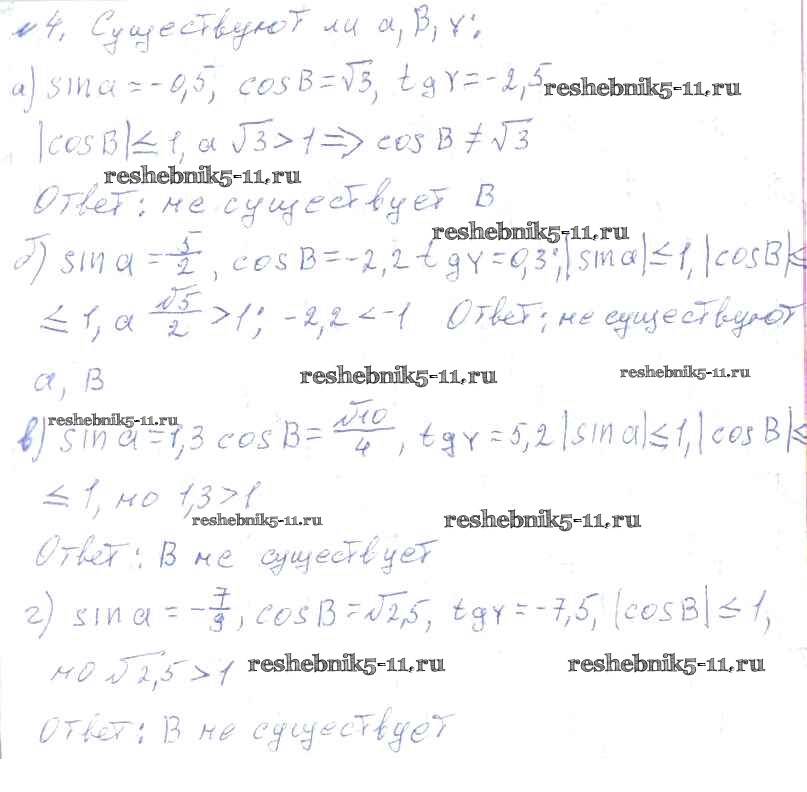 №4. Существуют ли a, B, γ:
а) sin a = -0,5, cos B = √3, tg γ = -2,5 reshebnik5-11.ru
|cos B| ≤ 1, а √3 > 1 => cos B ≠ √3
reshebnik5-11.ru
Ответ: не существует B
reshebnik5-11.ru
б) sin a = 5/2, cos B = -2,2 tg γ = 0,3; |sin a| ≤ 1, |cos B| ≤
≤ 1, а √5/2 > 1; -2,2 < -1 Ответ: не существуют
a, B reshebnik5-11.ru reshebnik5-11.ru
reshebnik5-11.ru
в) sin a = 1,3 cos B = √10/4, tg γ = 5,2 |sin a| ≤ 1, |cos B| ≤
≤ 1, но 1,3 > 1
reshebnik5-11.ru reshebnik5-11.ru
Ответ: B не существует
г) sin a = -7/9, cos B = √2,5, tg γ = -7,5, |cos B| ≤ 1,
но √2,5 > 1 reshebnik5-11.ru reshebnik5-11.ru
Ответ: B не существует